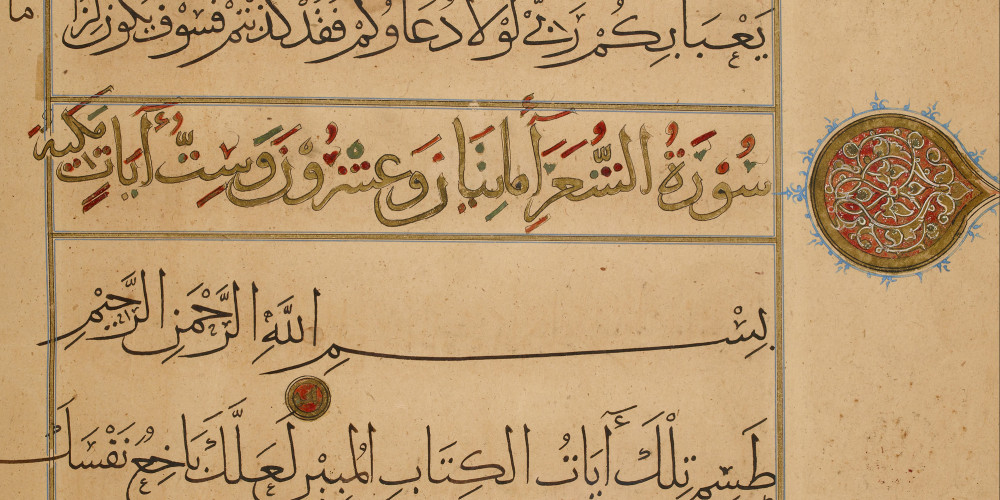 يَعْبَأُ بِكُمْ رَبِّي لَوْلَا دُعَاؤُكُمْ فَقَدْ كَذَّبْتُمْ فَسَوْفَ يَكُونُ لِزَامًا
سُورَةُ الشُّعَرَآءِ مِائَتَانِ وَعِشْرُونَ وَسِتُّ آيَاتٍ مَكِّيَّةٌ
بِسْمِ اللَّهِ الرَّحْمَنِ الرَّحِيمِ
طَسِمَ تِلْكَ آيَاتُ الْكِتَابِ الْمُبِينِ لَعَلَّكَ بَاخِعٌ نَفْسَكَ